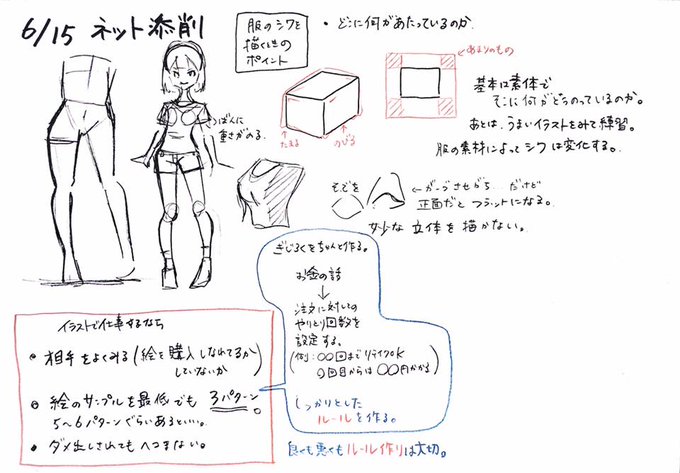 6/15 ネット添削
服のシワを
描くときの
ポイント
・どこに何があたっているのか
あまりのもの
基本は素体で
そこに何がどうのっているのか。
あとは、うまいイラストをみて練習。
服の素材によってシワは変化する。
重さがのる。
たえる
のびる
そでを
正面だとフラットになる。
妙な立体を描かない。
ぎじろくをちゃんと作る。
お金の話
↓
注文に対しての
やりとり回数を
設定する。
(例:○○回までリテイクOK
○回目からは○○円かかる)
しっかりとした
ルールを作る。
イラストで仕事するなら
・相手をよくみる(絵を購入しなれてるか
していないか)
・絵のサンプルを最低でも3パターン。
5〜6パターンぐらいあるといい。
・ダメ出しされてもへこまない。
良くも悪くもルール作りは大切。